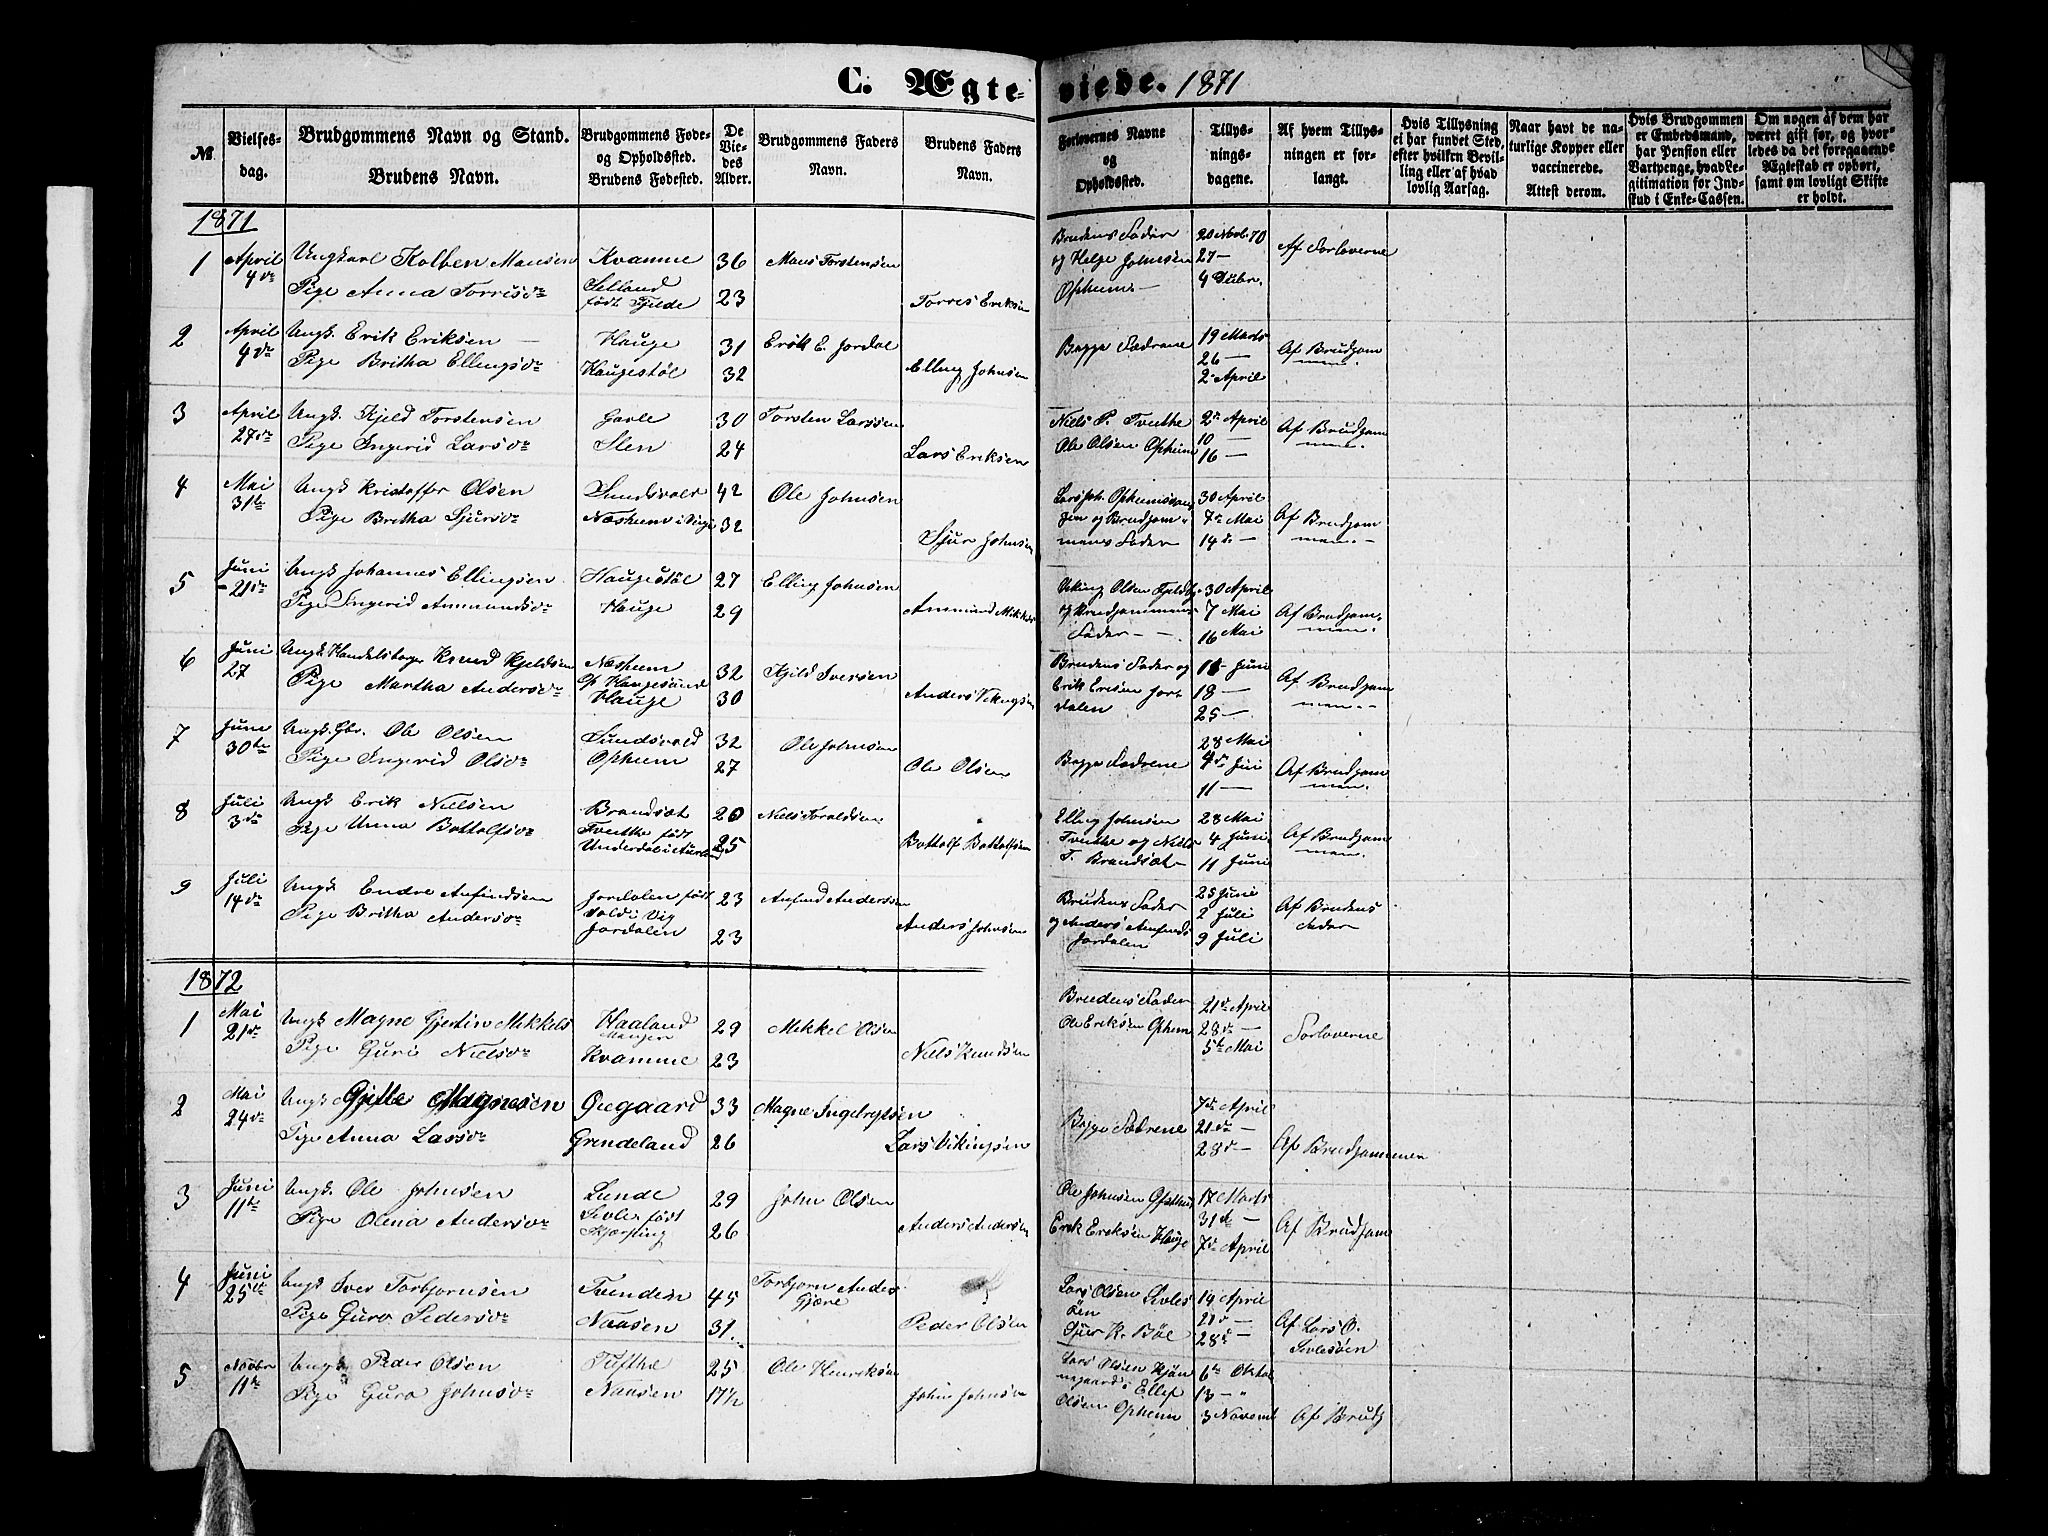 C. Ægte- viede. 1871
№
Vielses-
dag.
Brudgommens Navn og Stand.
Brudens Navn.
Brudgommens Føde-
og Opholdssted.
Brudens Fødested.
De
Vie-
des
Alder.
Brudgommens Faders
Navn.
Brudens Faders
Navn.
Forlovernes Navne
og
Opholdssted.
Tillys-
nings-
dagene.
Af hvem Tillys-
ningen er for-
langt.
Hvis Tillysning
ei har fundet Sted,
efter hvilken Bevil-
ling eller af hvad
lovlig Aarsag.
Naar havt de na-
turlige Kopper eller
vaccinerede.
Attest derom.
Hvis Brudgommen
er Embedsmand,
har Pension eller
Vartpenge, hvad Le-
gitimation for Ind-
skud i Enke-Cassen.
Om nogen af dem har
været gift før, og hvor-
ledes da det foregaaende
Ægteskab er ophørt,
samt om lovligt Skifte
er holdt.
1871
1 April 4de Ungkarl Kolben Mansen Kvamme 36 Mans Torstensen
Pige Anna Torrisd. Selland født Fjelde 23 Torres Eriksen
Brudens Fader og Helge Johnsen Opheim
20 Novb. 70 27 — 4 Debr. Af Forloverne
2 April 4de Ungk. Erik Eriksen Hauge 31 Erik E. Jordal
Pige Britha Ellingsd. Haugestøl 32 Elling Johnsen
Begge Fædrene
19 Marts 26 — 2 April Af Brudgommen.
3 April 27de Ungk. Kjeld Torstensen 30 Torsten Larssen
Pige Ingerid Larsd. 24 Lars Eriksen
Niels P. Tvinthe Ole Olsen Opheim
2den April 10 — 16 — Af Brudgommen
4 Mai 31te Ungk Kristoffer Olsen Sundsvold 42 Ole Johnsen
Pige Britha Sjursd. Næsheim i Vig 32 Sjur Johnsen
og Brudgommens Fader
30 April 7de Mai 14de — Af Brudgommen
5 Juni 21de Ungk Johannes Ellingsen Haugestøl 27 Elling Johnsen
Pige Ingerid Ammundsd. Hauge 29 Ammund Mikkels
Viking Olsen og Brudgommens Fader
30 April 7 Mai 16 Mai Af Brudgommen.
6 Juni 27 Ungk. Handelsborger Knud Kjeldsen Næsheim Op. Haugesund 32 Kjeld Iversen
Pige Martha Andersd. Hauge 30 Anders Vikingsen
Brudens Fader og Erik Ersen Jordalen
11 Juni 18 — 25 — Af Brudgommen
7 Juni 30te Ungk. Gbr. Ole Olsen Sundsvold 32 Ole Johnsen
Pige Ingerid Olsd. Opheim 27 Ole Olsen
Begge Fædrene
28 Mai 4de Juni 11 — Af Brudgommen.
8 Juli 3de Ungk Erik Nielsen Brandsæt 20 Niels Toraldsen
Pige Unna Bottolfsd. Tvinthe født Underdal i Aurland 25 Bottolf Bottolfsen
Elling Johnsen Tvinthe og Niels T. Brandsæt
28 Mai 4 Juni 11 Juni Af Brudgommen.
9 Juli 14de Ungk Endre Anfindsen Jordalen født Vold i Vig 23 Anfind Andersen
Pige Britha Andersd. Jordalen 23 Anders Johnsen
Brudens Fader og Anders Anfinds Jordalen
25 Juni 2 Juli 9 Juli Af Brudens Fader
1872
1 Mai 21de Ungk Magne Gjertin Mikkels Haaland Manger 29 Mikkel Olsen
Pige Guri Nielsd. Kvamme 23 Niels Knudsen
Brudens Fader Ole Eriksen Opheim
21de April 28de — 5te Mai Forloverne
2 Mai 24de Ungk Gjitle Magnesen Øiegaard 33 Magne Ingebrygtsen
Pige Anna Larsd. Grindeland 26 Lars Vikingsen
Begge Fædrene
7de April 21de — 28de — Af Brudgommen
3 Juni 11te Ungk. Ole Johnsen Lunde 29 John Olsen
Pige Olena Andersd. Sivle født Skjærping 26 Anders Andersen
Ole Johnsen Erik Eriksen Hauge
17 Marts 31te — 7de April Af Brudgom
4 Juni 25de Ungk Iver Torbjørnsen Tvinden 45 Torbjørn Anders Gjære
Pige Guro Pedersd. Naasen 31. Peder Olsen
Lars Olsen Sivlesøen Sjur K. Bøe
14 April 21de — 28de — Af Lars O. Sivlesøen
5 Novbr 11te Ungk Peder Olsen Tufthe 25 Ole Henriksen
Pige Guro Johnsd. Naasen 17½ John Johnsen
Lars Olsen Ellef Olsen Opheim
6te Oktob 13 — " 3 Novemb Af Brudg